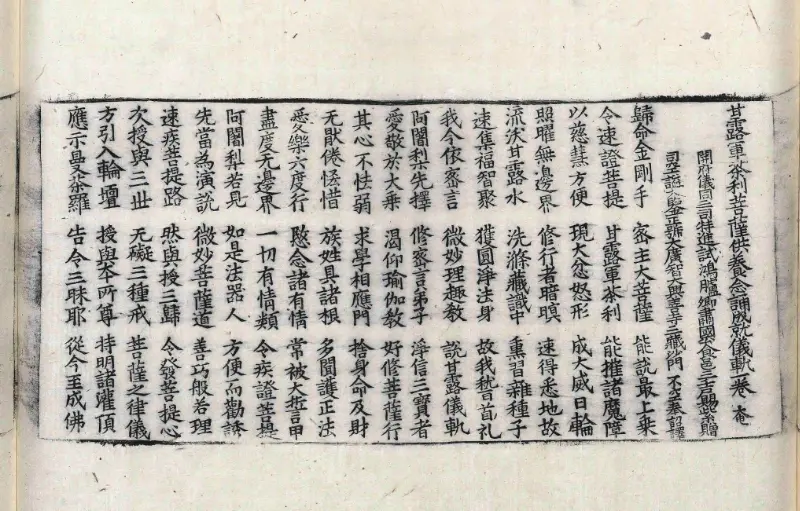 甘露軍荼利菩薩供養念誦成就儀軌一卷 庵
開府儀同三司特進試鴻臚卿肅國公食邑三千戶賜紫贈
司空謚大鑒正號大廣智大興善寺三藏沙門不空奉 詔譯
歸命金剛手 密主大菩薩 能說最上乘
令速證菩提 甘露軍荼利 能摧諸魔障
以慈慧方便 現大忿怒形 成大威日輪
照曜無邊界 修行者暗暝 速得悉地故
流沃甘露水 洗滌藏識中 熏習雜種子
速集福智聚 獲圓淨法身 故我稽首礼
我今依密言 微妙理趣教 說甘露儀軌
阿闍梨先擇 修密言弟子 淨信三寶者
愛敬於大乘 渴仰瑜伽教 好修菩薩行
其心不怯弱 求學相應門 捨身命及財
无猒倦恡惜 族姓具諸根 多聞護正法
愛樂六度行 愍念諸有情 常被大誓甲
盡度无邊界 一切有情類 令疾證菩提
阿闍梨若見 如是法器人 方便而勸誘
先當為演說 微妙菩薩道 善巧般若理
速疾菩提路 然與授三歸 令發菩提心
次授與三世 无礙三種戒 菩薩之律儀
方引入輪壇 授與本所尊 持明諸灌頂
應示曼荼羅 告令三昧耶 從今至成佛